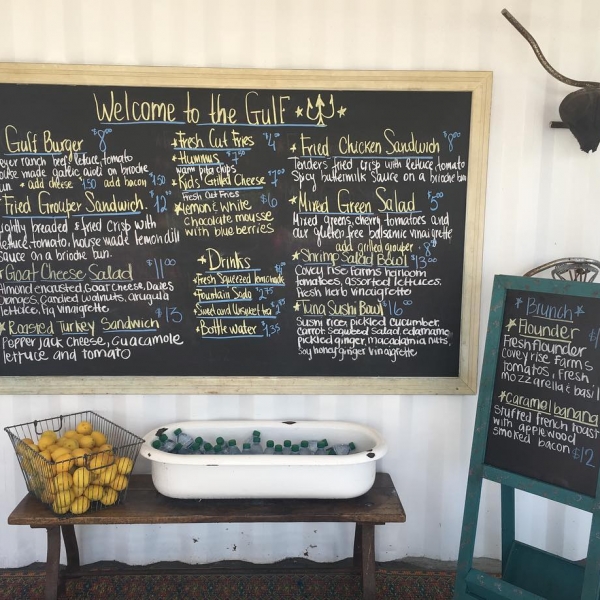 Welcome to the Gulf
Gulf Burger $8
ranch beef, lettuce, tomato
house made garlic aioli on brioche
bun * add cheese $1.50 add bacon $1.50
Fried Grouper Sandwich $12
lightly breaded & fried crisp with
lettuce, tomato, house made lemon dill
sauce on a brioche bun.
Goat Cheese Salad $11
Almond encrusted Goat Cheese, Dates
Oranges, candied walnuts, arugula
lettuce, fig vinaigrette
Roasted Turkey Sandwich $13
Pepper jack cheese, Guacamole
lettuce and tomato
Fresh Cut Fries $4
Hummus $7.50
warm pita chips
Kids Grilled Cheese $7
Fresh Cut Fries
lemon & white $6
chocolate mousse
with blueberries
Drinks
Fresh Squeezed lemonade
Fountain Soda $2.75
Sweet and Unsweet tea
Bottle water $1.35
Fried Chicken Sandwich $8
Tenders fried crisp with lettuce, tomato
Spicy buttermilk sauce on a brioche bun
Mixed Green Salad $5
Mixed greens, cherry tomatoes and
our gluten free balsamic vinaigrette
add grilled grouper $8
Shrimp Salad Bowl $13.00
Covey rise Farms heirloom
tomatoes, assorted lettuces,
Fresh herb vinaigrette
Tuna Sushi Bowl $16
Sushi rice, pickled cucumber,
Carrot, Seaweed Salad, edamame,
pickled ginger, macadamia nuts,
Soy honey ginger vinaigrette
Brunch
Flounder
Fresh flounder
covey rise Farms
tomatos, fresh
mozzarella & basil
Caramel banana
Stuffed french toast
with applewood
smoked bacon $12